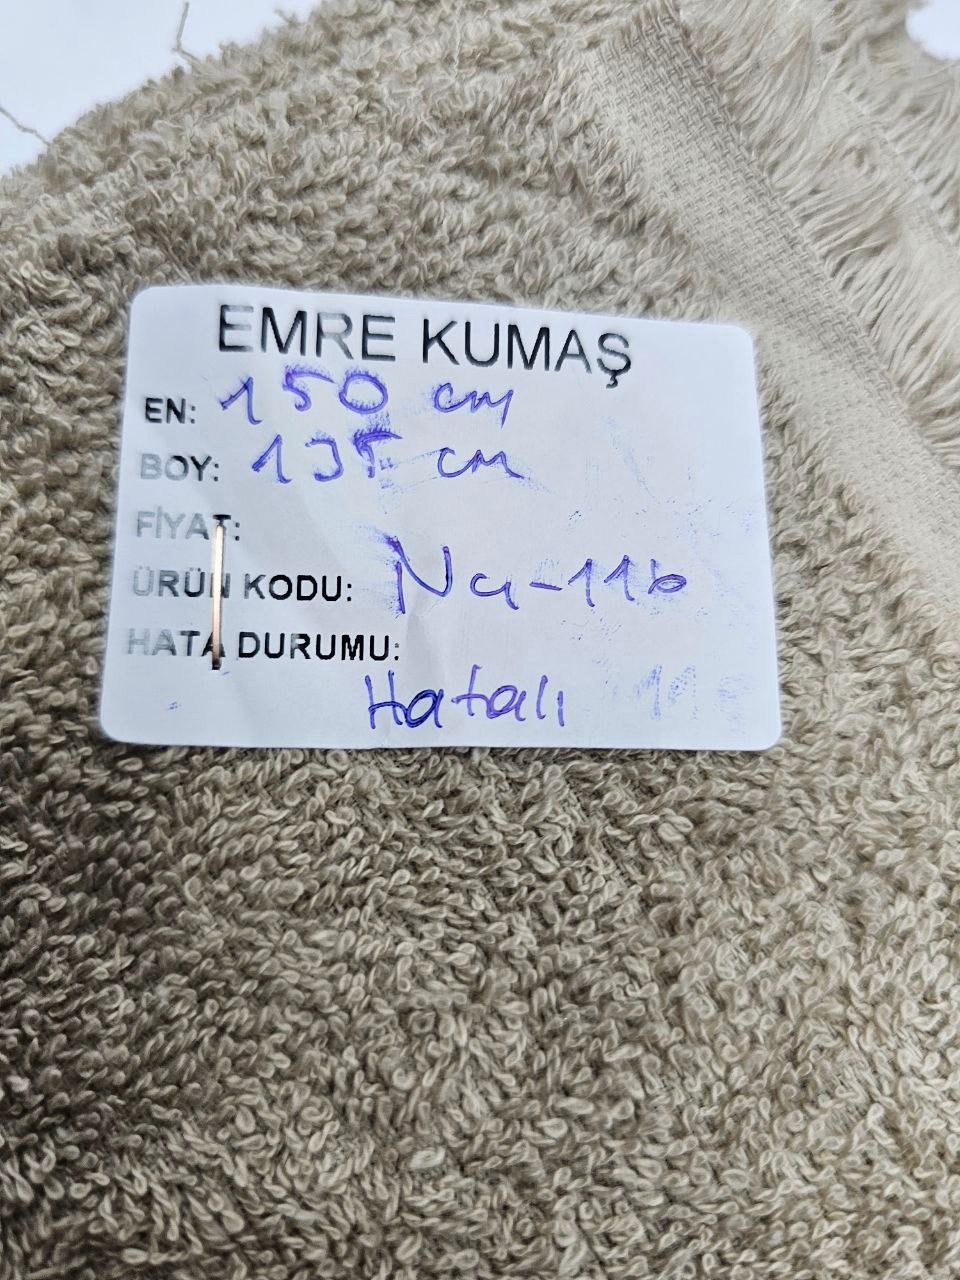 EMRE KUMAŞ
EN: 150 cm
BOY: 135 cm
FİYAT:
ÜRÜN KODU: Na-116
HATA DURUMU:
Hatalı